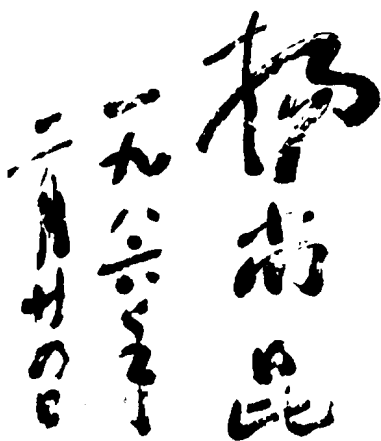 杨尚昆
一九八六年
二月廿四日